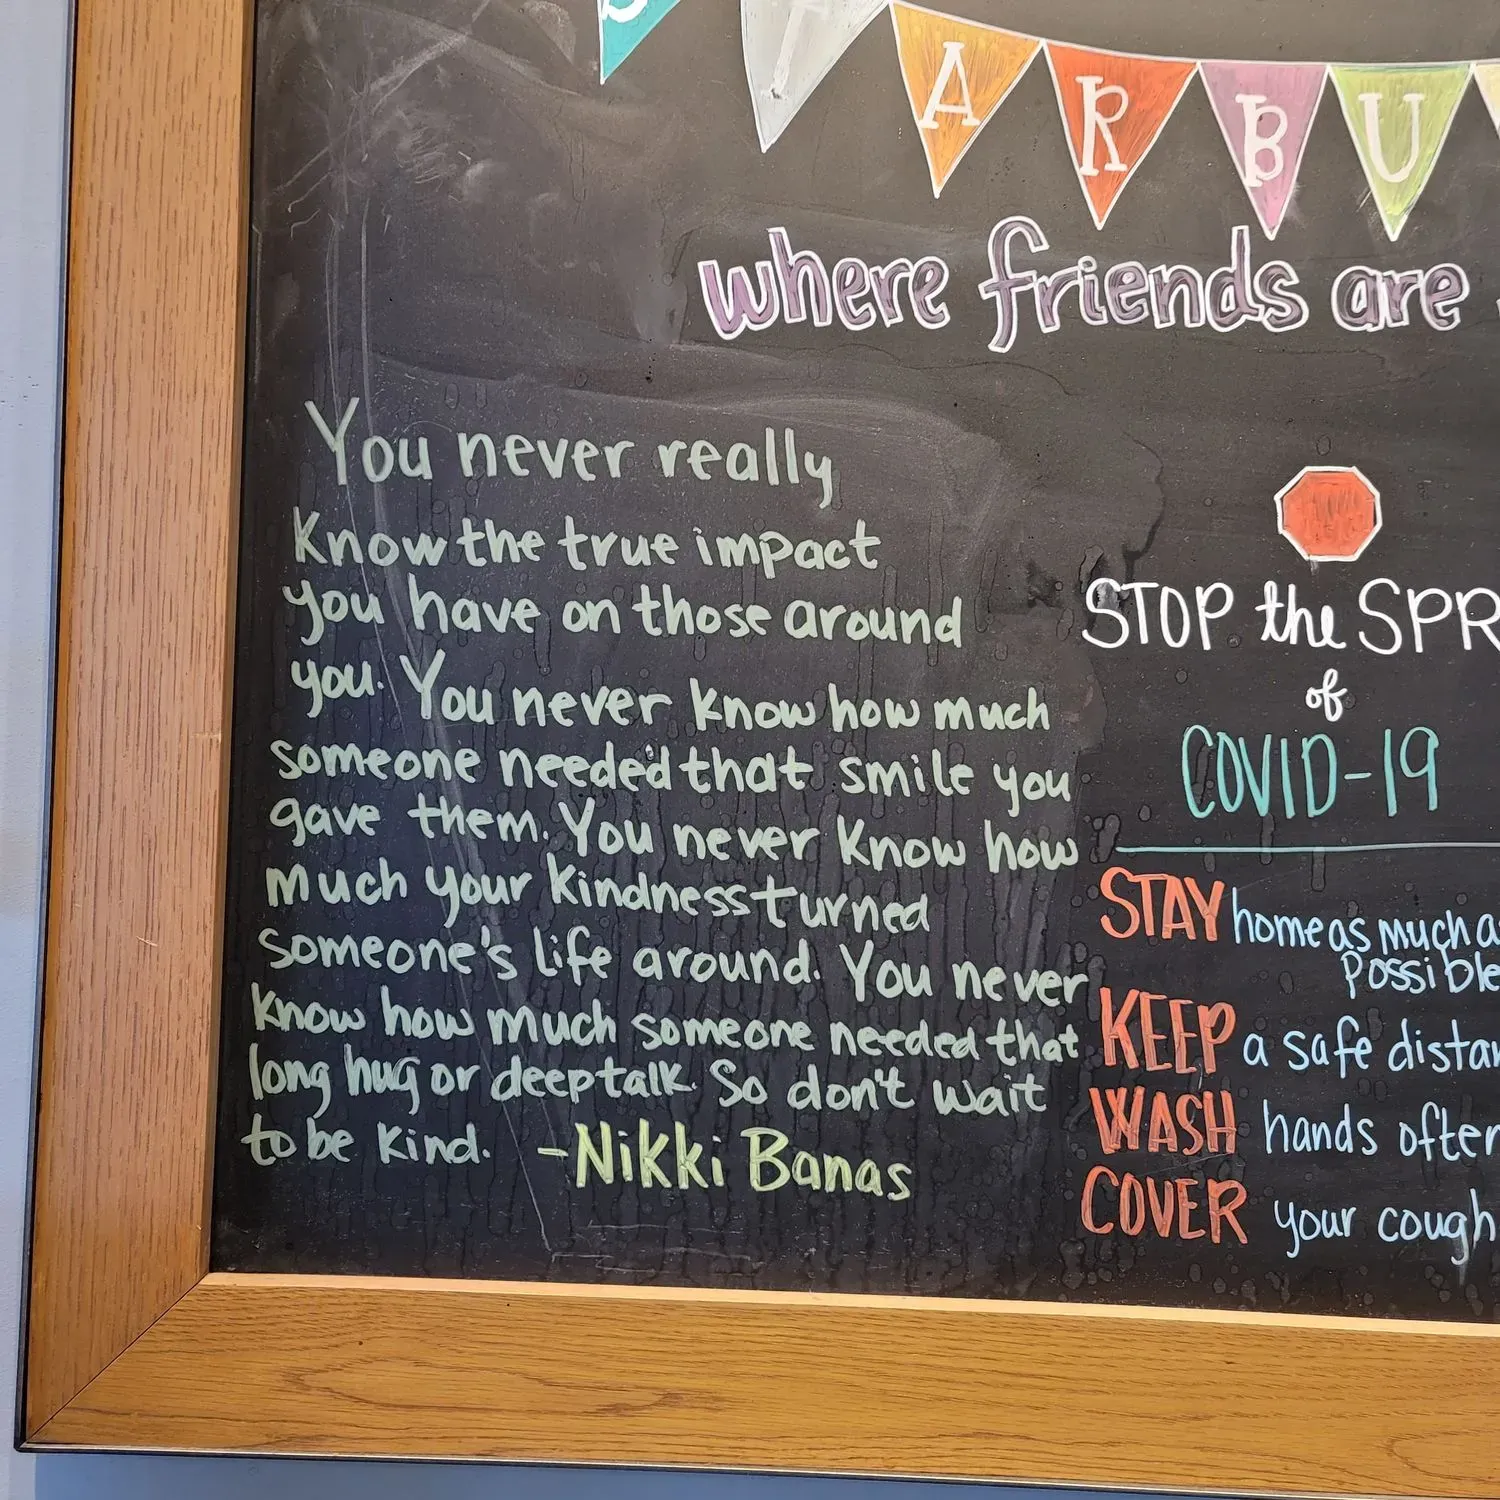 S T A R B U
where friends are
You never really
Know the true impact
you have on those around
you. You never know how much
someone needed that smile you
gave them. You never know how
much your kindness turned
someone's life around. You never
know how much someone needed that
long hug or deep talk. So don't wait
to be kind. -Nikki Banas
STOP the SPR
of
COVID-19
STAY home as much a
possible
KEEP a safe distan
WASH hands often
COVER your cough